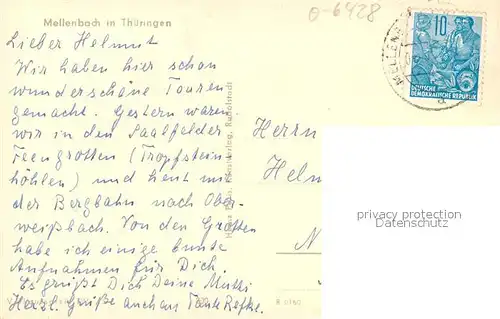 Mellenbach in Thüringen
O-6428
10
DEUTSCHE
DEMOKRATISCHE REPUBLIK
Lieber Helmut
Wir haben hier schon
wunderschöne Touren
gemacht. Gestern waren
wir in den Saalfelder
Feengrotten (Tropfstein-
höhlen) und heut mit
der Bergbahn nach Ober-
weißbach. Von den Grotten
habe ich einige bunte
Aufnahmen für Dich.
Es grüßt Dich Deine Mutti
Herzl. Grüße auch an Tante
Herrn
Helm
privacy protection
Datenschutz